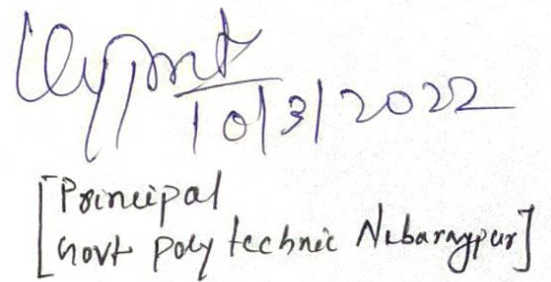 10/3/2022
[Principal
Govt Polytechnic Nabarangpur]